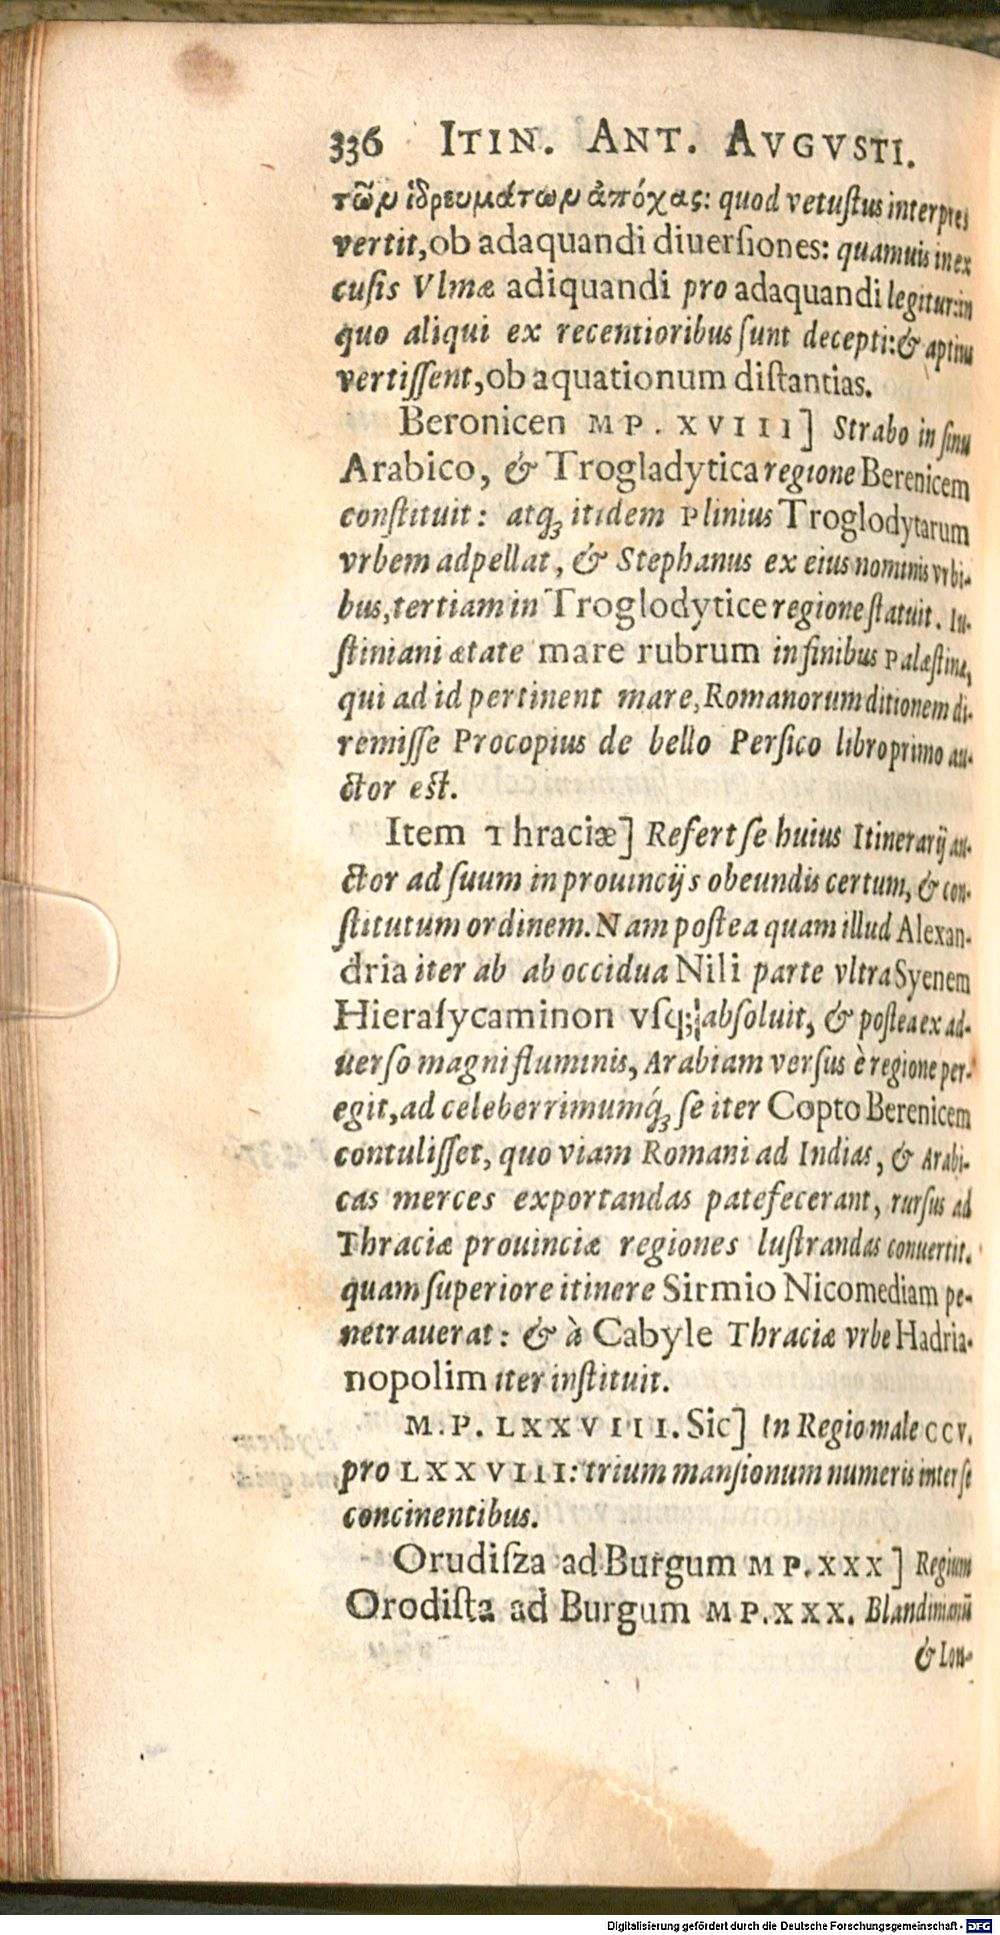 336 ITIN. ANT. AVGVSTI.
τῶν ἱδρευμάτων ἀπόχας: quod vetuſtus interpres
vertit, ob adaquandi diuerſiones: quamuis in ex
cuſis Vlmæ adiquandi pro adaquandi legitur: in
quo aliqui ex recentioribus ſunt decepti: & aptius
vertiſſent, ob aquationum diſtantias.
Beronicen MP. XVIII] Strabo in ſinu
Arabico, & Trogladytica regione Berenicem
conſtituit: atq; itidem Plinius Troglodytarum
vrbem adpellat, & Stephanus ex eius nominis vrbi-
bus, tertiam in Troglodytice regione ſtatuit. Iu-
ſtiniani ætate mare rubrum in finibus Palæſtinæ,
qui ad id pertinent mare, Romanorum ditionem di-
remiſſe Procopius de bello Perſico libro primo au-
ctor eſt.
Item Thraciæ] Refert ſe huius Itinerarij au-
ctor ad ſuum in prouincijs obeundis certum, & con-
ſtitutum ordinem. Nam poſtea quam illud Alexan-
dria iter ab ab occidua Nili parte vltra Syenem
Hieraſycaminon vſq; abſoluit, & poſtea ex ad-
uerſo magni fluminis, Arabiam verſus è regione per-
egit, ad celeberrimumq́; ſe iter Copto Berenicem
contuliſſet, quo viam Romani ad Indias, & Arabi-
cas merces exportandas patefecerant, rurſus ad
Thraciæ prouinciæ regiones luſtrandas conuertit.
quam ſuperiore itinere Sirmio Nicomediam pe-
netrauerat: & à Cabyle Thraciæ vrbe Hadria-
nopolim iter inſtituit.
M.P. LXXVIII. Sic] In Regio male CCV.
pro LXXVIII: trium manſionum numeris inter ſe
concinentibus.
Orudiſza ad Burgum MP. XXX] Regium
Orodiſta ad Burgum MP. XXX. Blandinianū
& Lon-
Digitalisierung gefördert durch die Deutsche Forschungsgemeinschaft - DFG